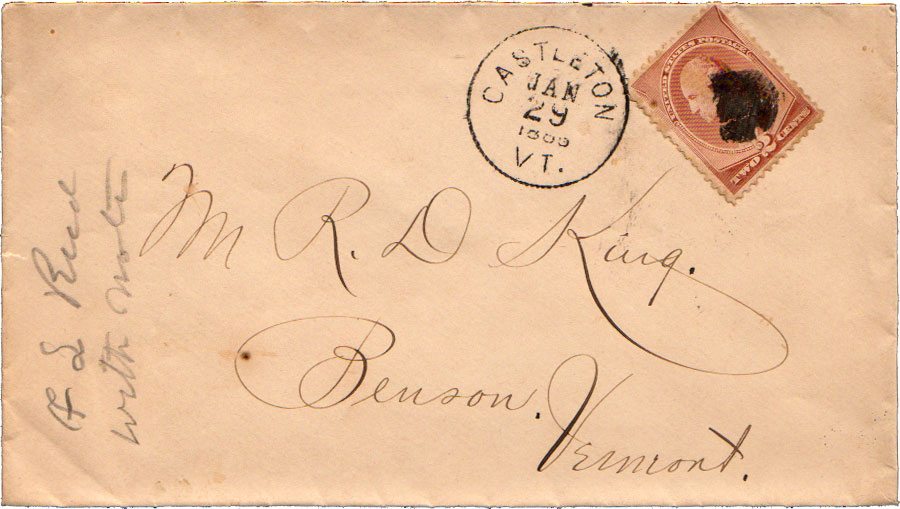 CASTLETON
JAN
29
VT.
UNITED STATES POSTAGE
TWO 2 CENTS
Mr R. D King.
Benson. Vermont.
with note